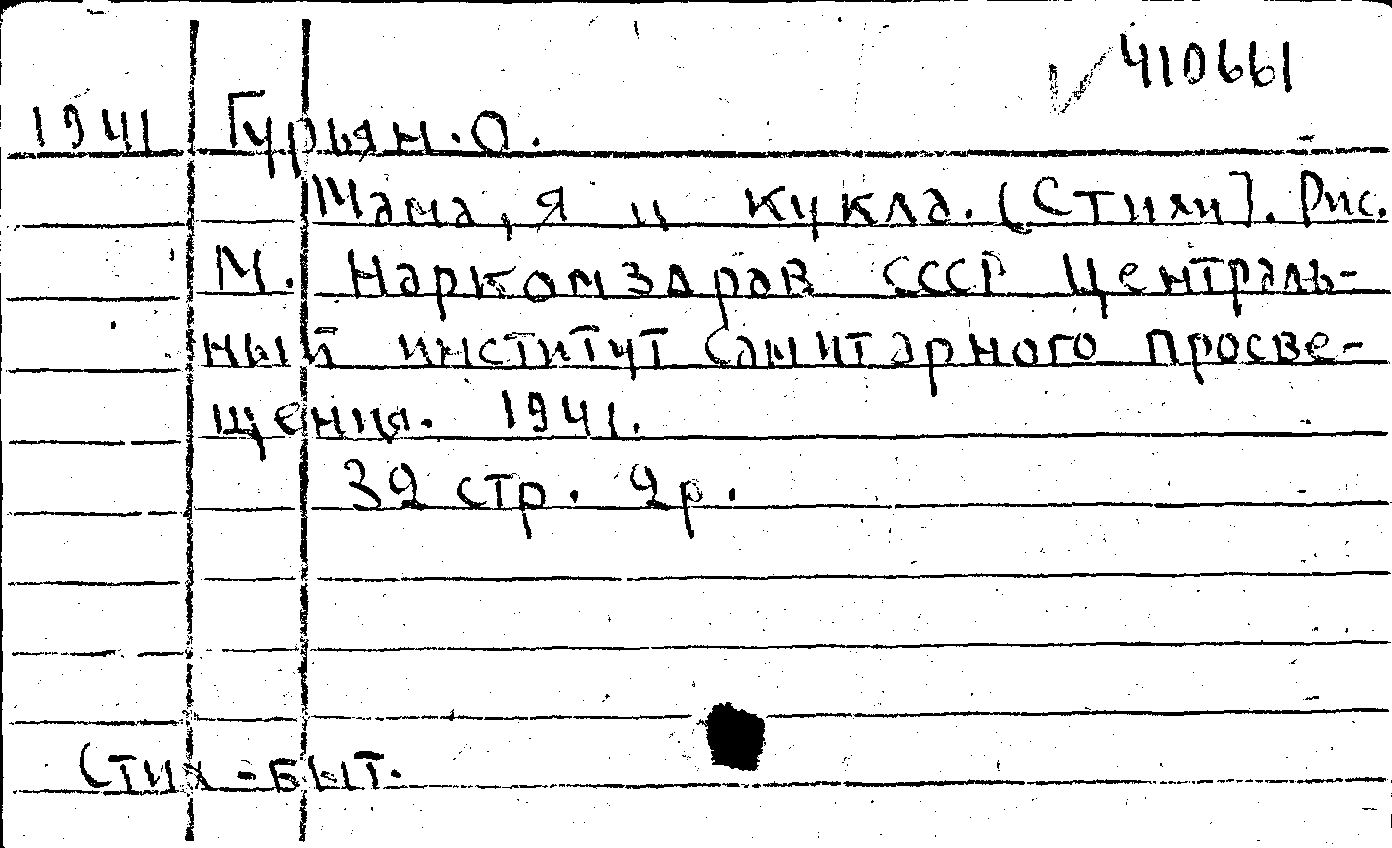 410661
1941 Гурьян. О.
Мама, я и кукла. (Стихи]. Рис.
М. Наркомздрав СССР Централь-
ный институт санитарного просве-
щения. 1941.
32 стр. 2р.
Стих-быт.